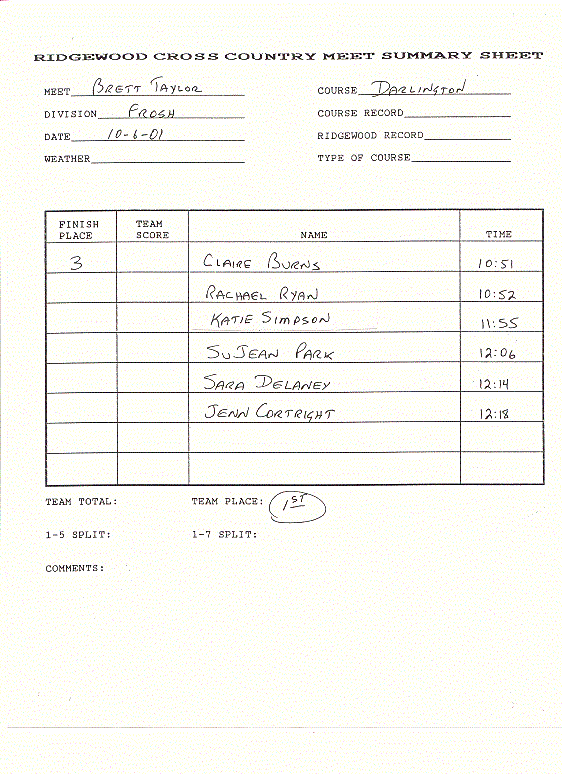 RIDGEWOOD CROSS COUNTRY MEET SUMMARY SHEET
MEET BRETT TAYLOR COURSE DARLINGTON
DIVISION FROSH COURSE RECORD
DATE 10-6-01 RIDGEWOOD RECORD
WEATHER TYPE OF COURSE
FINISH PLACE TEAM SCORE NAME TIME
3 CLAIRE BURNS 10:51
RACHAEL RYAN 10:52
KATIE SIMPSON 11:55
SUJEAN PARK 12:06
SARA DELANEY 12:14
JENN CORTRIGHT 12:18
TEAM TOTAL: TEAM PLACE: 1ST
1-5 SPLIT: 1-7 SPLIT:
COMMENTS: